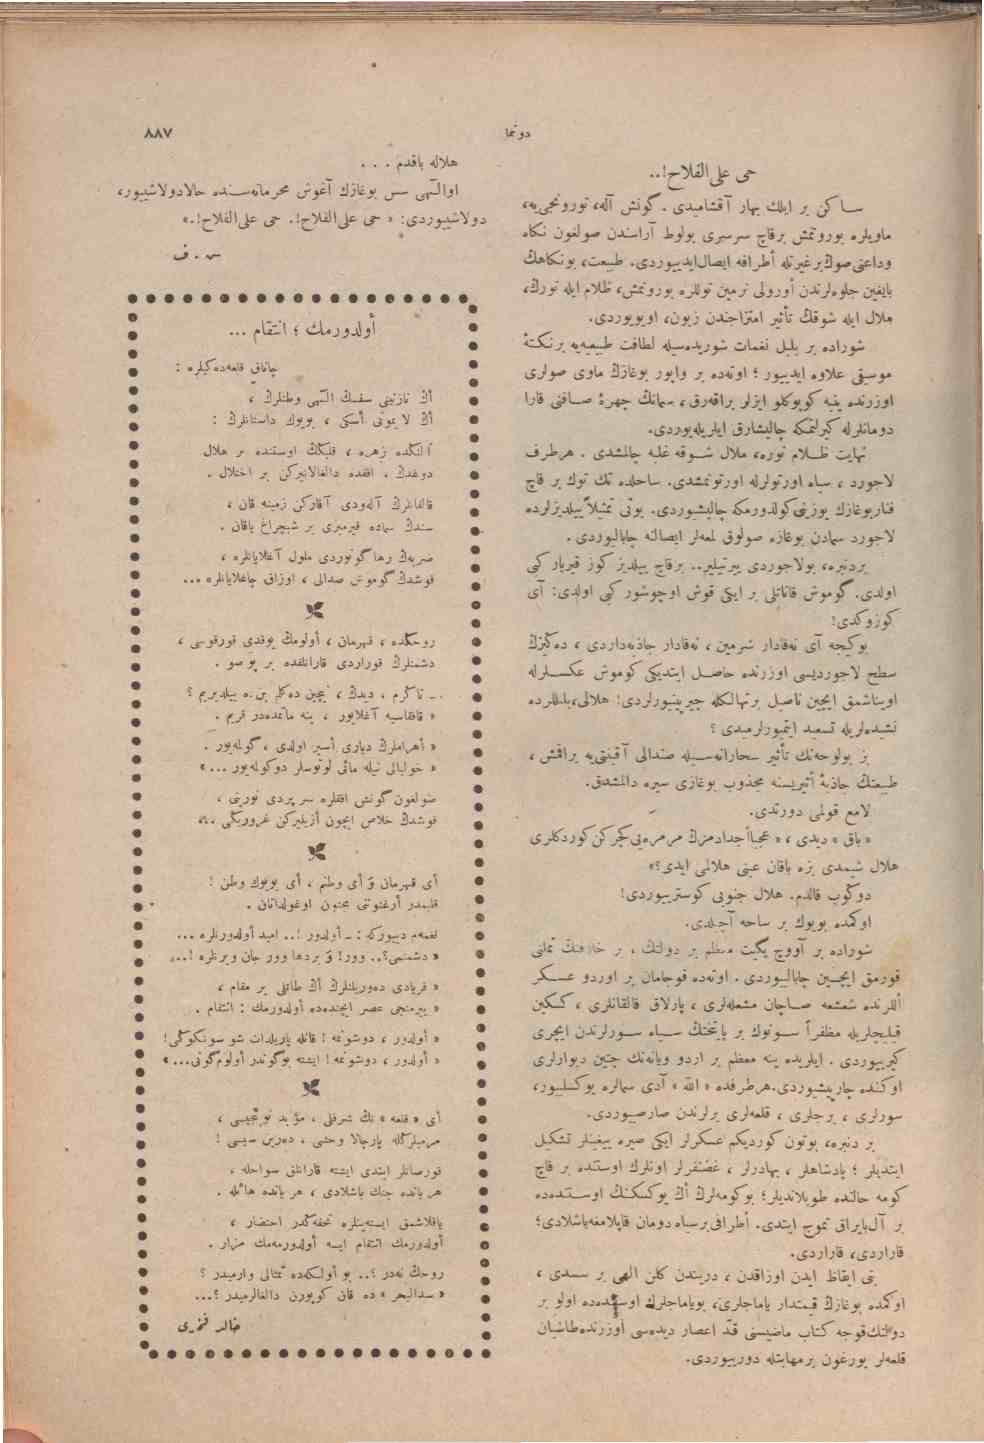 دونما
٨٨٧
حی علی الفلاح!..
ساکن بر ایلك بهار آقشامیدی. گونش آله، تورونجی‌یه،
ماویلره بورونمش برقاچ سرسری بولوط آراسندن صولغون نكاه
وداعنی صوڭ برغیرتله أطرافه ایصال‌ایدییوردی. طبیعت، بونكاهك
بایغین جلوه‌لرندن أورولی نرمین توللره بورونمش، ظلام ایله نورڭ،
ملال ایله شوقڭ تأثیر امتزاجندن زبون، اویویوردی.
شوراده بر بلبل نغمات شوریده‌سیله لطافت طبیعیه‌یه برنكتهٔ
موسیقی علاوه ایدییور؛ اوته‌ده بر واپور بوغازڭ ماوی صولری
اوزرنده ینبه كوپوكلو ایزلر براقه‌رق، سمانڭ چهرهٔ صافنی قارا
دومانلرله كیرلتمكه چالیشارق ایلریله‌یوردی.
نهایت ظلام نوره، ملال شوقه غلبه چالمشدی. هرطرف
لاجورد، سیاه اورتولرله اورتونمشدی. ساحلده تك توك بر قاچ
فنار بوغازك یوزینی كولدورمكه چالیشیوردی. بوتی تمثیلاً ییلدیزلرده
لاجورد سمادن بوغازه صولوق لمعه‌لر ایصالنه چابالیوردی.
بردنبره، بولاجوردی ییرتیلیر.. برقاچ ییلدیز كوز قیرپار كبی
اولدی. گوموش قاناتلی بر ایكی قوش اوچوشور كبی اولدی: آی
كوزوكدی!
بوگیجه آی نه‌قادار شرمین، نه‌قادار جاذبه‌داردی، ده‌كیزڭ
سطح لاجوردیسی اوزرنده حاصل ایتدیكی كوموش عكسلرله
اویناشمق ایچین ناصیل برتهالكله چیرپینیورلردی! هلالی، بلبللرده
نشیده‌لریله تسعید ایتمیورلرمیدی؟
بز بولوحه‌نك تأثیر سحارانه‌سیله صندالی آقینتی‌یه براقمش،
طبیعتڭ جاذبهٔ أثیریسنه مجذوب بوغازی سیره دالمشدق.
لامع قولمی دورتدی.
« باق » دیدی، « عجبا أجدادمزڭ مرمره‌یی كچركن كوردكلری
هلال شیمدی بزه باقان عینی هلالمی ایدی؟»
دوكوب قالدم. هلال جنوبی كوسترییوردی!
اوكمده بویوك بر ساحه آچیلدی.
شوراده بر آووچ یگیت منظم بر دولتڭ، بر خلافتڭ تملنی
قورمق ایچین چابالیوردی. اوته‌ده قوجامان بر اوردو عسكر
أللرنده شعشعه صاچان مشعله‌لری، پارلاق قالقانلری، كسكین
قیلیجلریله مظفراً سونوك بر پایتختڭ سیاه سورلرندن ایچری
كیرییوردی. ایلریده ینه معظم بر اردو ویانه‌نك چتین دیوارلری
اوكنده چارپیشیوردی. هرطرفده « الله » آدی سمالره یوكسلیور،
سورلری، برجلری، قلعه‌لری یرلرندن صارصیوردی.
بر دنبره، بوتون كوردیكم عسكرلر ایكی صیره ییغینلر تشكیل
ایتدیلر؛ پادشاهلر، بهادرلر، غضنفرلر اونلرك اوستنده بر قاچ
كومه حالنده طوپلاندیلر؛ بوكومه‌لرڭ أڭ یوكسكنڭ اوستنده‌ده
بر آل‌بایراق تموج ایتدی. أطرافی برسیاه دومان قاپلامغه‌باشلادی؛
قاراردی، قاراردی.
بنی ایقاظ ایدن اوزاقدن، دریندن كلن الهی بر سسدی،
اوكمده بوغازڭ قیمتدار یاماجلری، بویاماجلرك اوستنده‌ده اولو بر
دولتك‌قوجه كتاب ماضیسنی قدّ اعصار دیده‌سی اوزرنده طاشییان
قلعه‌لر یورغون برمهابتله دورییوردی.
هلاله باقدم . . .
اوالٓهی سس بوغازك آغوش محرمانه‌سنده حالادولاشییور،
دولاشییوردی: « حی علی‌الفلاح!. حی علی‌الفلاح!.»
س . ف
أولدورمك ؛ انتقام ...
چاناق قلعه‌ده‌كیلره :
أڭ نازنینی سفك الٓهی وطنلرڭ ،
أڭ لا یموتی أسكی ، بویوك داستانلرڭ :
آلنكده زهره ، قلبكڭ اوستنده بر هلال
دوغدڭ . افقده دالغالانیركن بر اختلال .
قالقانلرڭ آله‌ودی آقاركن زمینه قان ،
سندڭ سماده قیرمیزی بر شبچراغ یاقان .
ضربه‌ڭ رها گوتوردی ملول آغلایانلره ،
قوشدڭ گوموش صدالی ، اوزاق چاغلایانلره ...
روحكده ، قهرمان ، أولومڭ یوقدی قورقوسی ،
دشمنلرڭ قوراردی قارانلقده بر پوصو .
ـ تاكرم . دیدڭ ، نیچین ده‌كلم بن‌ده ییلدیریم ؟
« قافقاسیه آغلایور ، ینه ماتمده‌در قریم .
« أهراملرڭ دیاری أسیر اولدی ، گوله‌یور .
« خولیالی نیله مائی لوتوسلر دوكوله‌یور ...»
صولغون گونش افقلره سرپردی نورینی ،
قوشدڭ خلاص ایچون أزیلیركن غروریكی ...
أی قهرمان و أی وطنم ، أی بویوك وطن !
قلبمدر أرغنونی مجنون اوغولداتان .
نغمه‌م دییوركه : ـ أولدور !.. امید أولدورنلره ...
« دشمنمی؟.. وور! و بردها وور جان ویرنلره !..
« فریادی ده‌وریلنلرڭ أڭ طاتلی بر مقام ،
« ییرمنجی عصر ایچنده‌ده أولدورمك : انتقام .
« أولدور ، دوشونمه ! قانله یاریلدات شو سونكوڭی!
« أولدور ، دوشونمه ! ایشته بوگوندر أولوم گونی...»
أی « قلعه » نك شرفلی ، مؤبد نوبتجیسی ،
مرمیلركله پارچالا وحشی ، ده‌رین سیسی !
قورصانلر ایتدی ایشته قارانلق سواحله ،
هر یانده جنك باشلادی ، هر یانده هائله .
یاقلاشمق ایسته‌ینلره تحفه‌كدر احتضار ،
أولدورمك انتقام ایسه أولدورمه‌مك مزار .
روحك نه‌در ؟.. بو أولكه‌ده تمثالی وارمیدر ؟
« سدالبحر » ده قان كوپورن دالغالرمیدر ؟...
خالد فخری